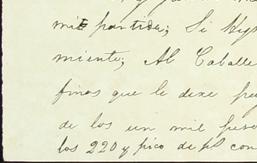 mi partida; Si
miento; Al Caballe
finos que le dexe
de los un mil peso
los 220 y pico de ps con